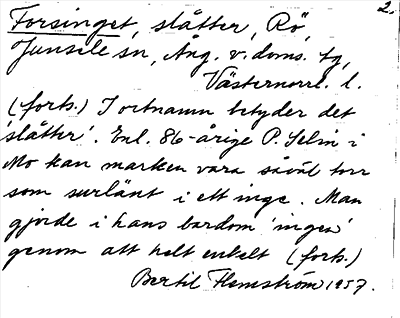 2.
Forsinget, slåtter, Rö,
Junsele sn, Ång. v. doms. tg,
Västernorrl. l.
(forts.) I ortnamn betyder det
'slåtter'. Enl. 86-årige P. Selin i
Mo kan marken vara såväl torr
som surlänt i ett inge. Man
gjorde i hans barndom 'ingen'
genom att helt enkelt (forts.)
Bertil Flemström 1957.